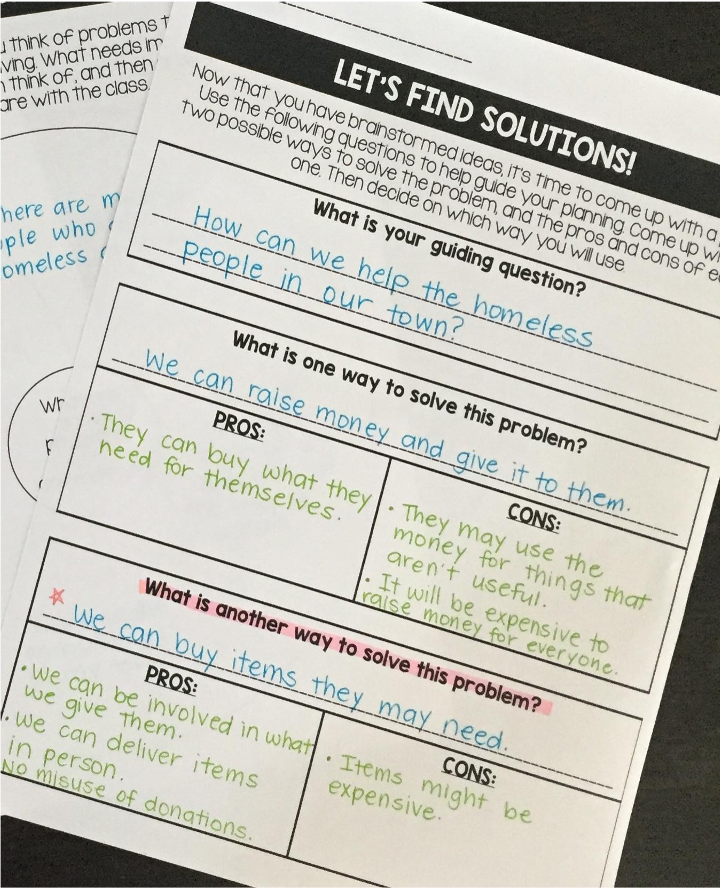 think of problems
ving. What needs
think of, and then
are with the class.
here are
ple who
omeless
LET'S FIND SOLUTIONS!
Now that you have brainstormed ideas, it's time to come up with a
Use the following questions to help guide your planning. Come up
two possible ways to solve the problem, and the pros and cons of
one. Then decide on which way you will use.
What is your guiding question?
How can we help the homeless
people in our town?
What is one way to solve this problem?
We can raise money and give it to them.
PROS:
· They can buy what they
need for themselves.
CONS:
· They may use the
money for things that
aren't useful.
· It will be expensive to
raise money for everyone.
What is another way to solve this problem?
☆ We can buy items they may need.
PROS:
· We can be involved in what
we give them.
· We can deliver items
in person.
No misuse of donations.
CONS:
· Items might be
expensive.